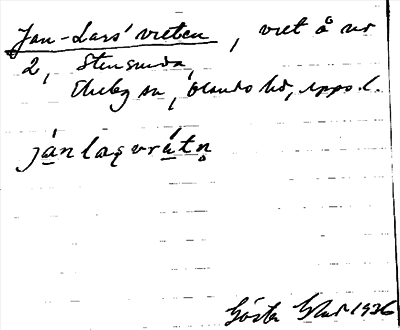 Jan-Lars' vreten, vret å nr
2, Stensunda,
Ekeby sn, Olands hd, Upps. l.
jánlaşvrátn̥
Gösta 1936